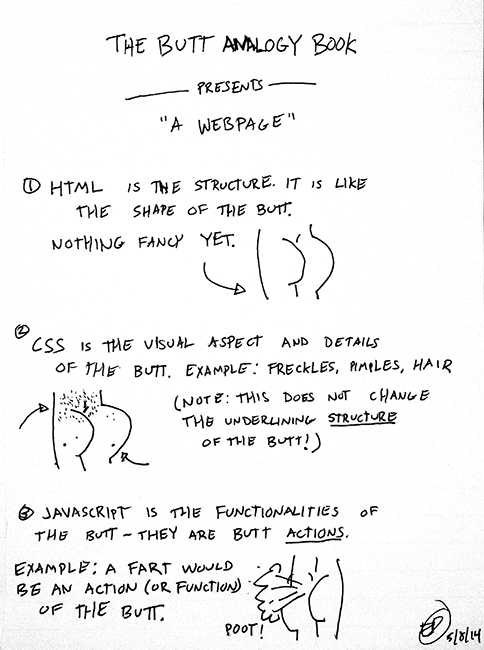 THE BUTT ANALOGY BOOK
PRESENTS
"A WEBPAGE"
① HTML IS THE STRUCTURE. IT IS LIKE
THE SHAPE OF THE BUTT.
NOTHING FANCY YET.
② CSS IS THE VISUAL ASPECT AND DETAILS
OF THE BUTT. EXAMPLE: FRECKLES, PIMPLES, HAIR
(NOTE: THIS DOES NOT CHANGE
THE UNDERLINING STRUCTURE
OF THE BUTT!)
③ JAVASCRIPT IS THE FUNCTIONALITIES OF
THE BUTT – THEY ARE BUTT ACTIONS.
EXAMPLE: A FART WOULD
BE AN ACTION (OR FUNCTION)
OF THE BUTT.
POOT!
5/8/14